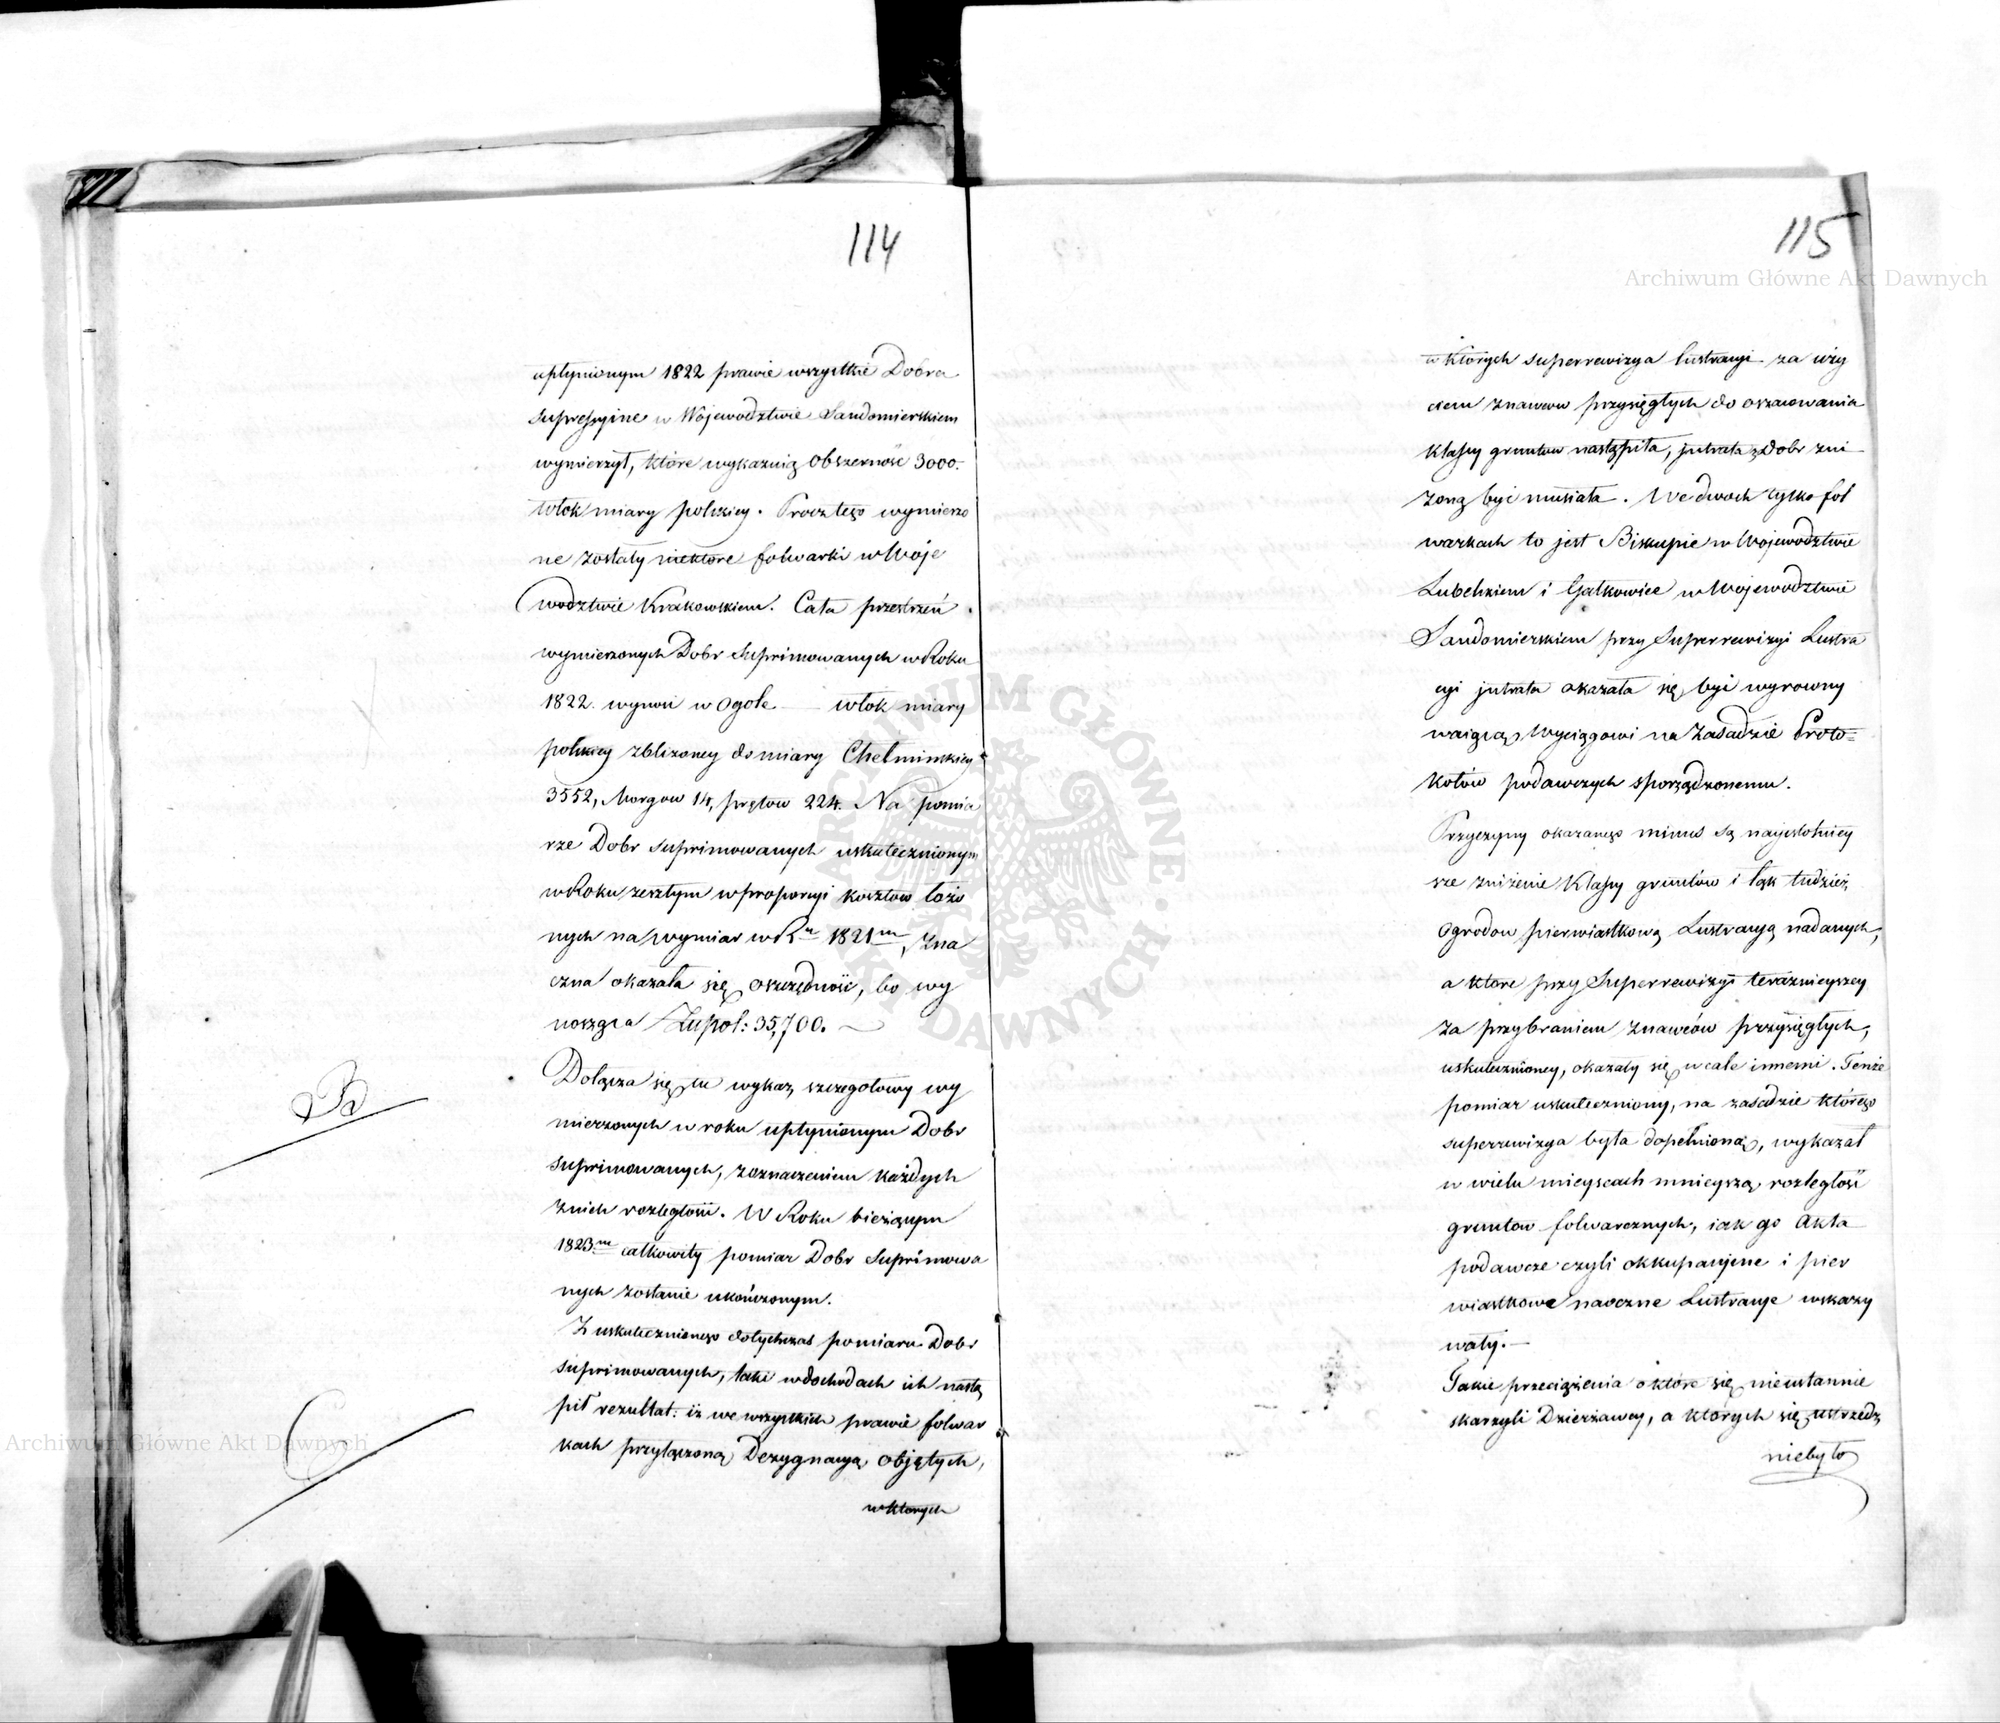 114
upłynionym 1822 prawie wszystkie Dobra
supressyine w Wojewodztwie Sandomierskiem
wymierzył, które wykazuią obszerność 3000.
włok miary polskiey. Procz tego wymierzo
ne zostały niektóre folwarki w Woje
wodztwie Krakowskiem. Cała przestrzeń
wymierzonych Dobr Suprimowanych w Roku
1822. wynosi w ogole — włok miary
polskiey zbliżoney do miary Chełmińskiey
3552, Morgow 14, prętow 224. Na pomia
rze Dobr suprimowanych uskutecznionym
w Roku zeszłym w proporcyi kosztow łożo
nych na wymiar w Rᵘ 1821ᵐ, zna
czna okazała się oszczędność, bo wy
nosząca Zł pol: 35,700. —
B
Dołącza się tu wykaz szczegołowy wy
mierzonych w roku upłynionym Dobr
suprimowanych, z oznaczeniem każdych
z nich rozległości. W Roku bieżącym
1823ᵐ całkowity pomiar Dobr Suprimowa
nych zostanie ukończonym.
Z uskutecznionego dotychczas pomiaru Dobr
suprimowanych, taki w dochodach ich nastą
pił rezultat: iż we wszystkich prawie folwar
C
kach przyłączoną Dezygnacyą objętych,
w ktorych
115
w ktorych superrewizya lustracyi za uży
ciem znawcow przysięgłych do oszacowania
klassy gruntow nastąpiła, intrata z Dobr zni
żoną być musiała. We dwoch tylko fol
warkach to jest Biskupie w Wojewodztwie
Lubelskiem i Gałkowice w Wojewodztwie
Sandomierskiem przy Superrewizyi Lustra
cyi intrata okazała się być wyrowny
waiącą Wyciągowi na Zasadzie Proto=
kołów podawczych sporządzonemu.
Przyczyny okazanego minus są nayistotniey
sze zniżenie Klassy gruntów i łąk tudzież
Ogrodow pierwiastkową Lustracyą nadanych,
a ktore przy Superrewizyi teraznieyszey
za przybraniem znawców przysięgłych,
uskutecznioney, okazały się wcale innemi. Tenże
pomiar uskuteczniony, na zasadzie którego
superrewizya była dopełnioną, wykazał
w wielu mieyscach mnieyszą rozległość
gruntow folwarcznych, iak go Akta
podawcze czyli okkupacyjne i pier
wiastkowe naoczne Lustracye wskazy
wały. —
Takie przeciążenia o które się nieustannie
skarżyli Dzierżawcy, a których się ustrzedz
niebyło
Archiwum Główne Akt Dawnych
Archiwum Główne Akt Dawnych
ARCHIWUM GŁÓWNE AKT DAWNYCH